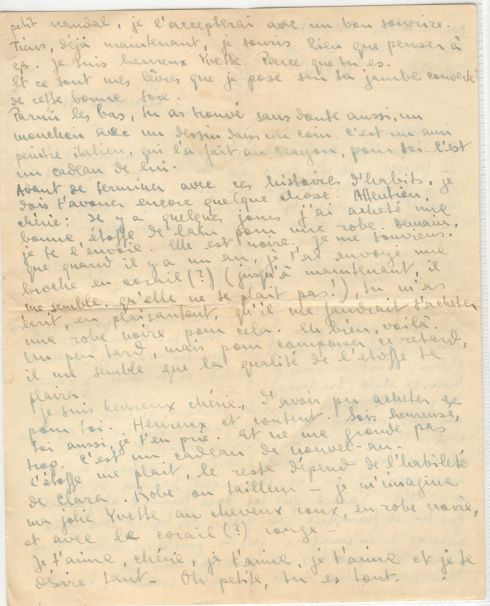 petit scandal, je l'accepterai avec un bon sourire.
Tiens, déjà maintenant, je souris. Rien que penser à
ça. Je suis heureux Yvette. Parce que tu es.
Et ce sont mes lèvres que je pose sur ta jambe couverte
de cette bonne soie.
Parmi les bas, tu as trouvé sans doute aussi, un
mouchoir avec un dessin dans un coin. C'est un ami
peintre italien, qui l'a fait au crayon, pour toi. C'est
un cadeau de lui.
Avant de terminer avec ces histoires d'habits, je
dois t'avouer encore quelque chose. Attention,
chérie: Il y a quelques jours j'ai acheté une
bonne étoffe de laine pour une robe. Demain,
je te l'envoie. Elle est noire, je me souviens
que quand il y a un an, je t'ai envoyé une
broche en corail (?) (jusqu'à maintenant, il
me semble qu'elle ne te plait pas!), tu m'as
écrit, en plaisantant, qu'il me faudrait t'acheter
une robe noire pour cela. Eh bien, voilà.
Un peu tard, mais pour compenser ce retard,
il me semble que la qualité de l'étoffe te
plaira.
Je suis heureux chérie, d'avoir pu acheter ça
pour toi. Heureux et content. Sois heureuse,
toi aussi, je t'en prie. Et ne me gronde pas
trop. C'est un cadeau de nouvel-an.
L'étoffe me plait, le reste dépend de l'habileté
de Clara. Robe ou tailleur - je m'imagine
ma jolie Yvette au cheveux roux, en robe noire,
et avec le corail (?) rouge -
Je t'aime, chérie, je t'aime, je t'aime et je te
désire tant - Oh petite, tu es tout.